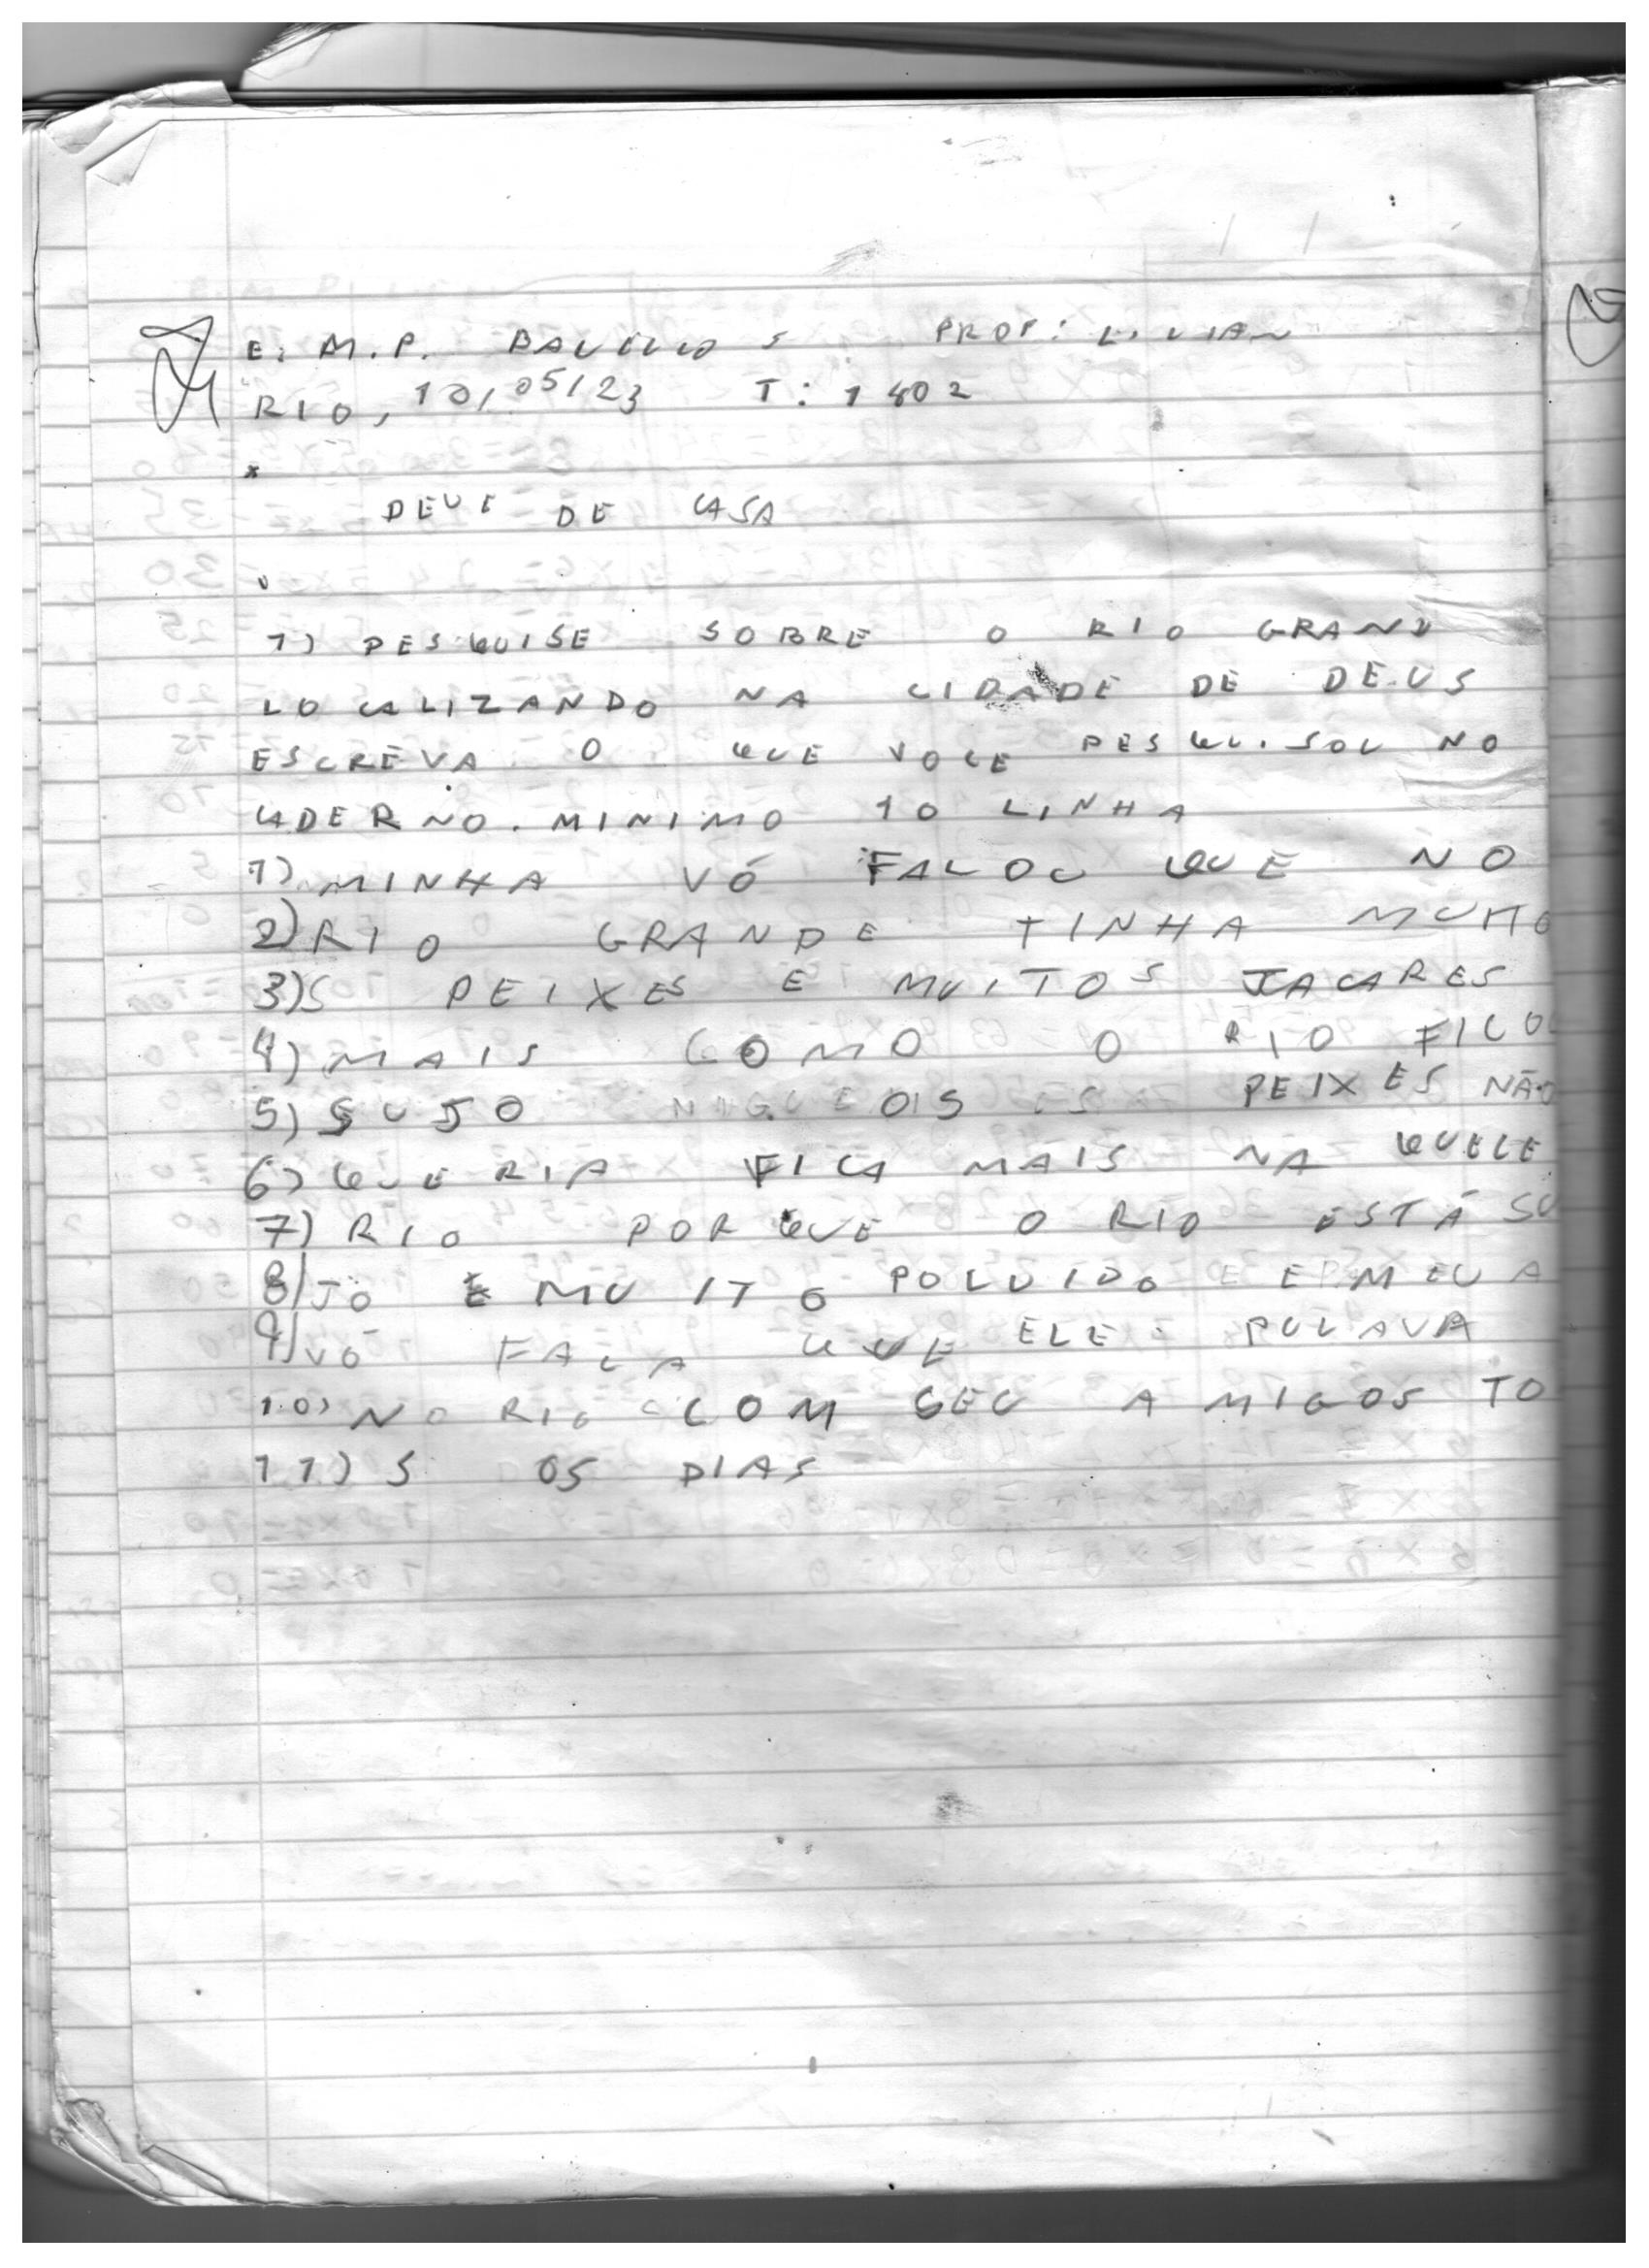 E. M. P. PROF: LIVIAN
RIO, 10/05/23 T: 1402
DEVE DE CASA
1) PESQUISE SOBRE O RIO GRAND
LOCALIZANDO NA CIDADE DE DEUS
ESCREVA O QUE VOCE PESQUISOU NO
CADERNO. MINIMO 10 LINHA
1) MINHA VÓ FALOU QUE NO
2) RIO GRANDE TINHA MUITO
3) S PEIXES E MUITOS JACARES
4) MAIS COMO O RIO FICOU
5) SUJO OS PEIXES NÃO
6) QUERIA FICA MAIS NA QUELE
7) RIO PORQUE O RIO ESTÁ SU
8) JO E MUITO POLUIDO E MEU A
9) VÔ FALA QUE ELE PULAVA
10) NO RIO COM SEU AMIGOS TO
11) S OS DIAS